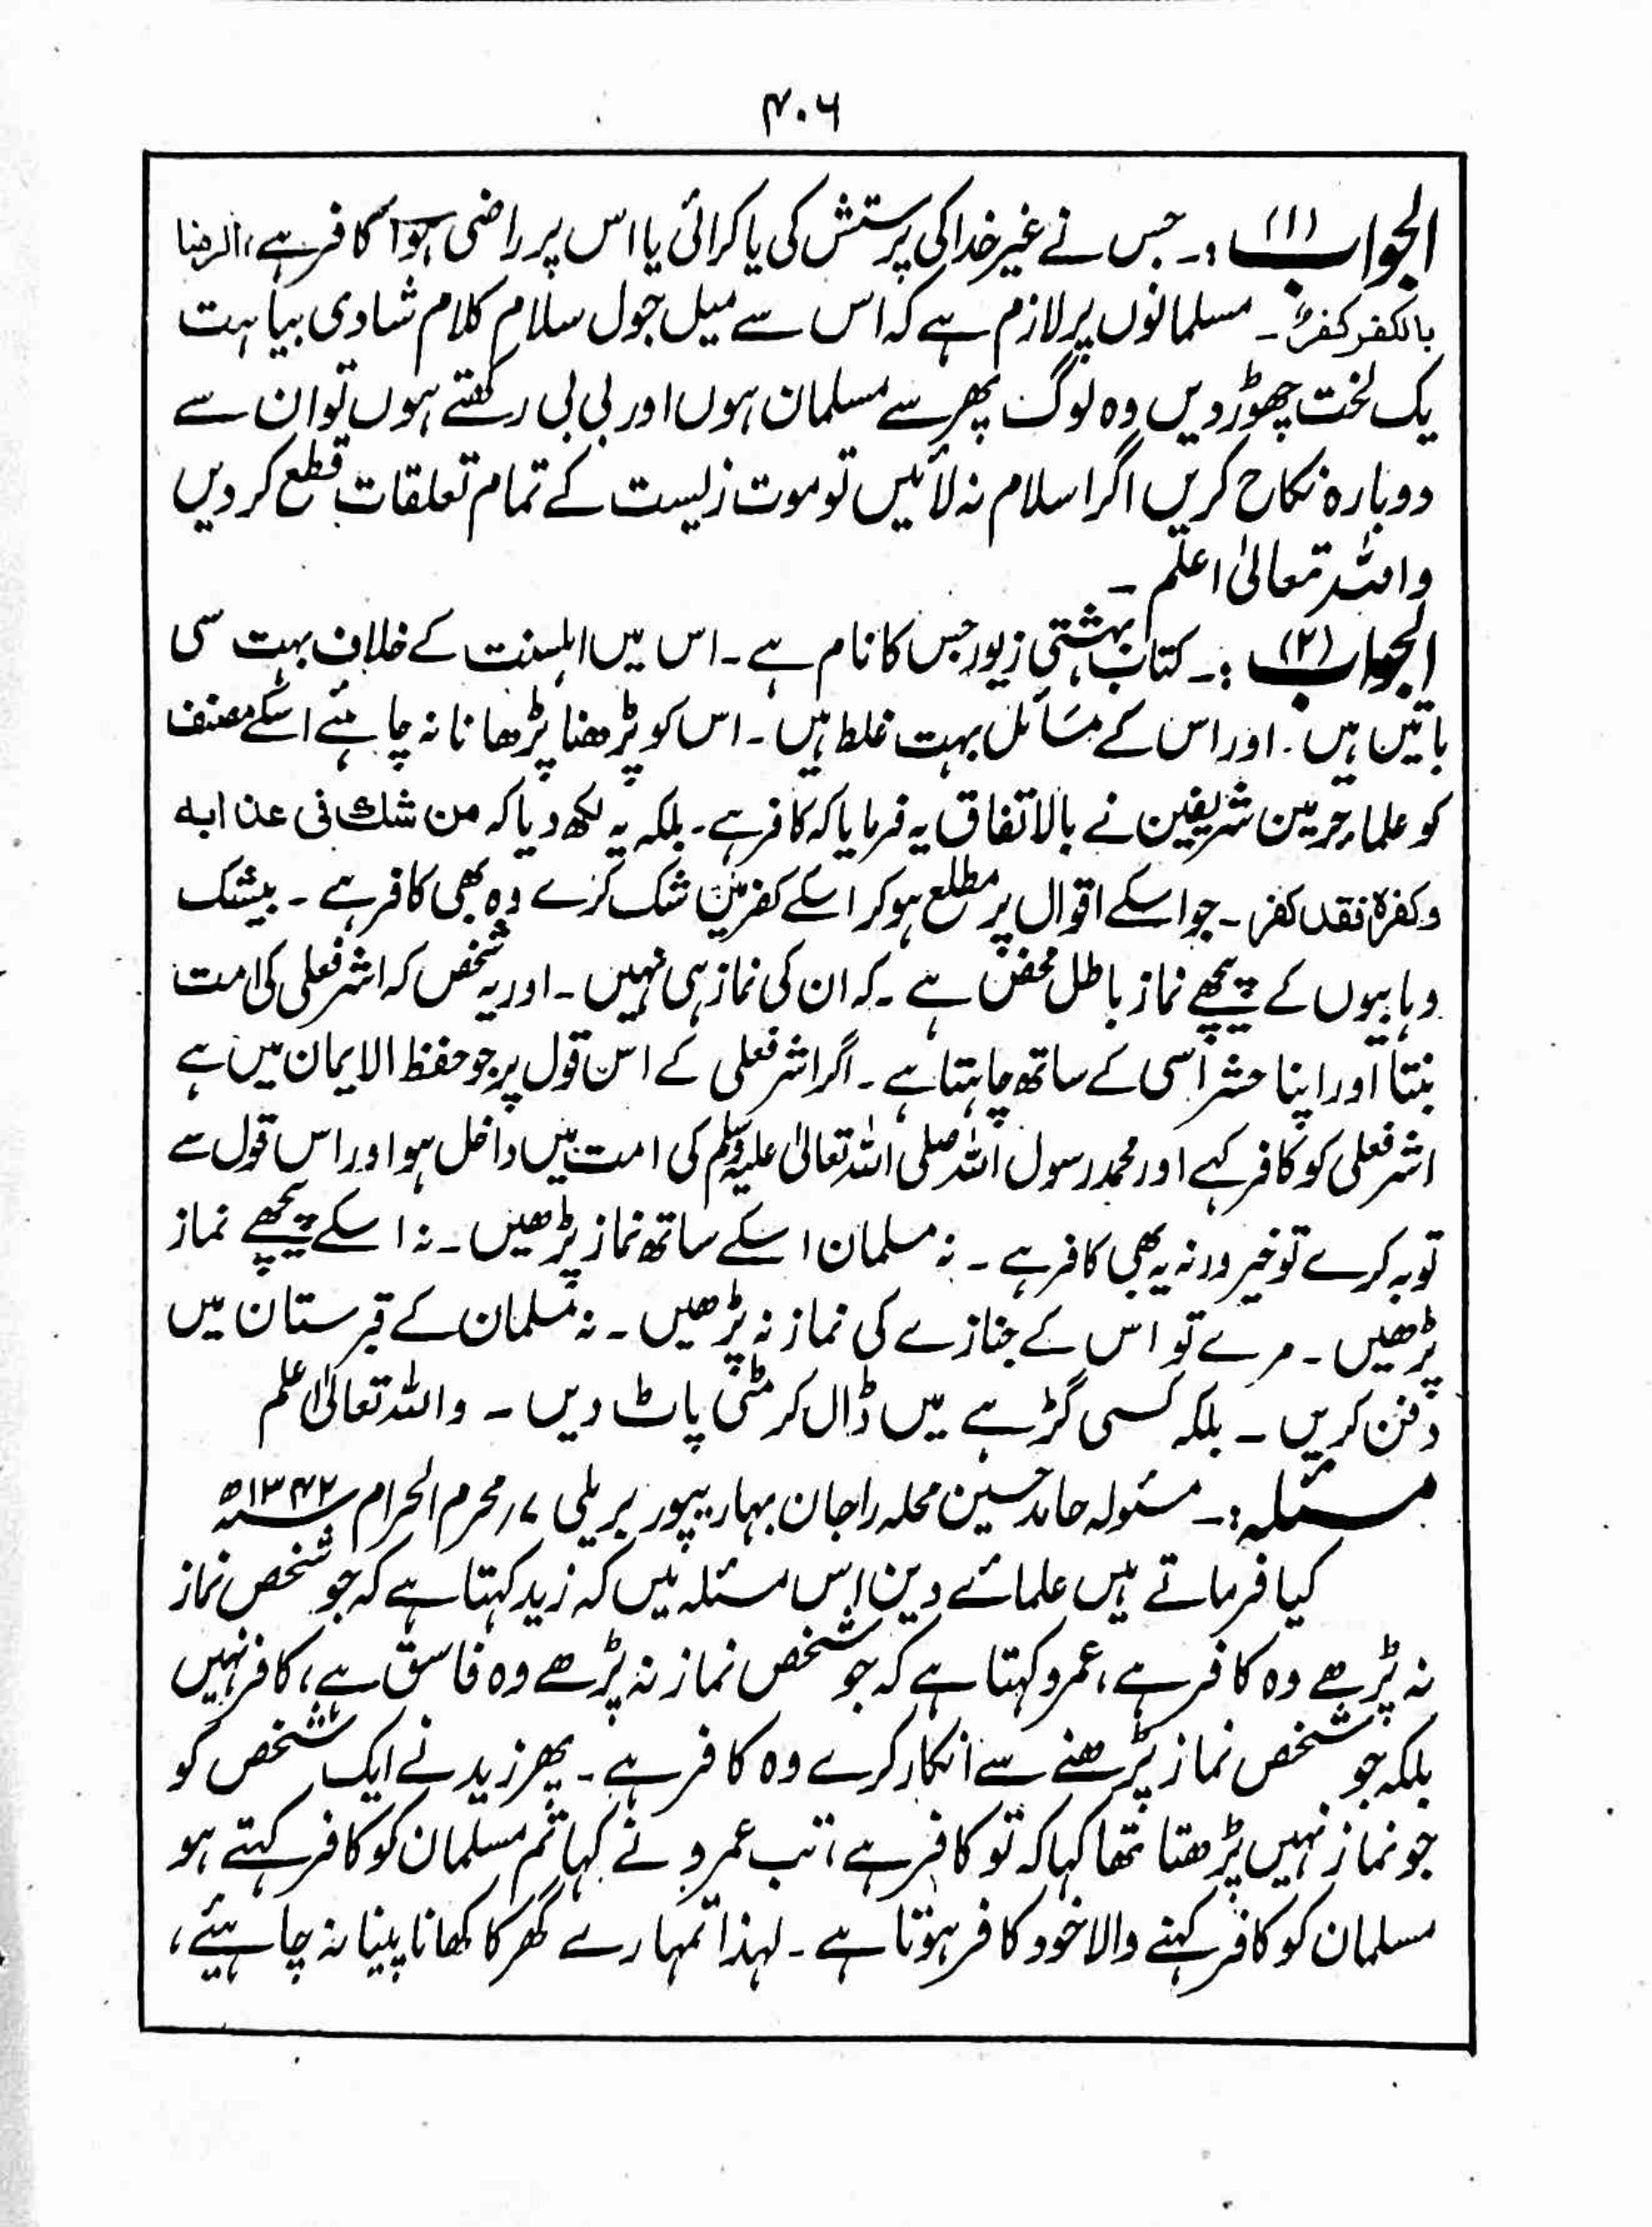 ۴۰۶
الجواب (۱) :۔ جس نے غیر خدا کی پرستش کی یا کرائی یا اس پر راضی ہوا کافر ہے، الرضا
بالکفر کفرٌ۔ مسلمانوں پر لازم ہے کہ اس سے میل جول سلام کلام شادی بیاہت
یک لخت چھوڑ دیں وہ لوگ پھر سے مسلمان ہوں اور بی بی رکھتے ہوں تو ان سے
دوبارہ نکاح کریں اگر اسلام نہ لائیں تو موت زیست کے تمام تعلقات قطع کر دیں
واللہ تعالیٰ اعلم ۔
الجواب (۲) :۔ کتاب بہشتی زیور جس کا نام ہے۔ اس میں اہلسنت کے خلاف بہت سی
باتیں ہیں۔ اور اس کے مسائل بہت غلط ہیں۔ اس کو پڑھنا پڑھانا نہ چاہئے اسکے مصنف
کو علماء حرمین شریفین نے بالاتفاق یہ فرمایا کہ کافر ہے۔ بلکہ یہ لکھ دیا کہ من شك فی عذابه
وکفرہ فقد کفر۔ جو اسکے اقوال پر مطلع ہو کر اسکے کفر میں شک کرے وہ بھی کافر ہے ۔ بیشک
وہابیوں کے پیچھے نماز باطل محض ہے ۔ کہ ان کی نماز ہی نہیں ۔ اور یہ شخص کہ اشرفعلی کی امت
بنتا اور اپنا حشر اسی کے ساتھ چاہتا ہے ۔ اگر اشرفعلی کے اس قول پر جو حفظ الایمان میں ہے
اشرفعلی کو کافر کہے اور محمد رسول اللہ صلی اللہ تعالیٰ علیہ وسلم کی امت میں داخل ہو اور اس قول سے
توبہ کرے تو خیر ورنہ یہ بھی کافر ہے ۔ نہ مسلمان اسکے ساتھ نماز پڑھیں ۔ نہ اسکے پیچھے نماز
پڑھیں ۔ مرے تو اس کے جنازے کی نماز نہ پڑھیں ۔ نہ مسلمان کے قبرستان میں
دفن کریں ۔ بلکہ کسی گڑہے میں ڈال کر مٹی پاٹ دیں ۔ واللہ تعالیٰ اعلم
مسئلہ :۔ مسئولہ حامد حسین محلہ راجان بہاریپور بریلی ۷؍ محرم الحرام ۱۳۴۲ھ
کیا فرماتے ہیں علمائے دین اس مسئلہ میں کہ زید کہتا ہے کہ جو شخص نماز
نہ پڑھے وہ کافر ہے، عمرو کہتا ہے کہ جو شخص نماز نہ پڑھے وہ فاسق ہے، کافر نہیں
بلکہ جو شخص نماز پڑھنے سے انکار کرے وہ کافر ہے ۔ پھر زید نے ایک شخص کو
جو نماز نہیں پڑھتا تھا کہا کہ تو کافر ہے، تب عمرو نے کہا تم مسلمان کو کافر کہتے ہو
مسلمان کو کافر کہنے والا خود کافر ہوتا ہے ۔ لہذا تمہارے گھر کا کھانا پینا نہ چاہیئے،